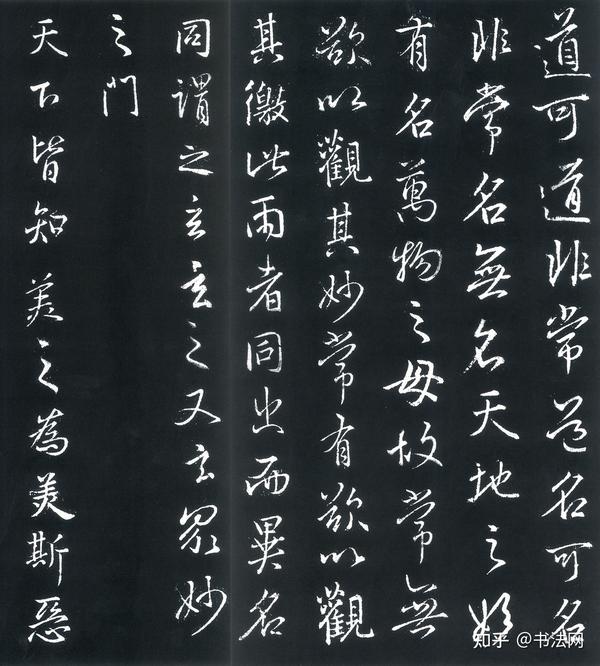 道可道非常道名可名
非常名無名天地之始
有名萬物之母故常無
欲以觀其妙常有欲以觀
其徼此兩者同出而異名
同謂之玄玄之又玄眾妙
之門
天下皆知美之為美斯惡
知乎 @书法网